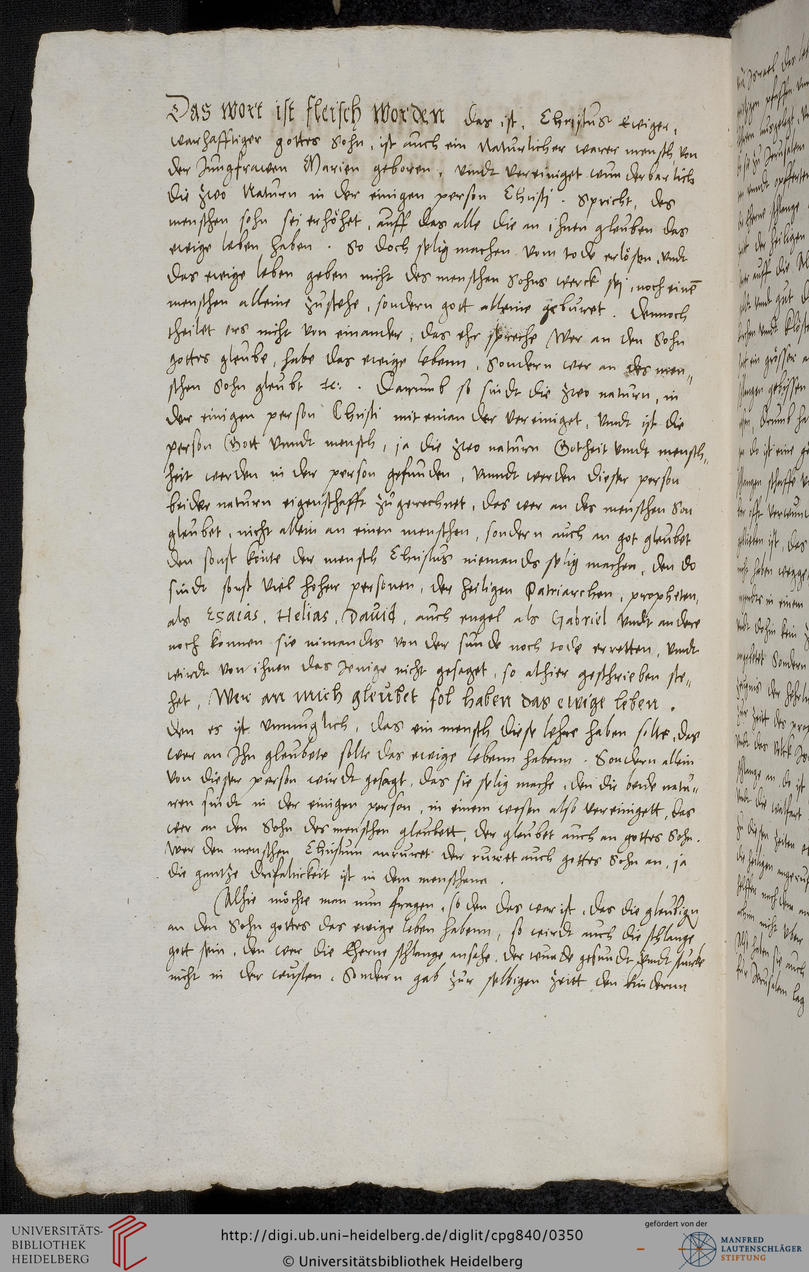 Das wort ist fleisch worden das ist, Christus ewiger,
warhafftiger gottes sohn, ist auch ein naturlicher warer mensch von
der Jungfrawen Marien geboren, vndt vereiniget wunderbarlich
die zwo Naturn in der einigen person Christi. Spricht, des
menschen sohn sei erhöhet, auff das alle die an ihnen gleuben das
ewige leben haben. So doch selig machen vom tode erlösen, vndt
das ewige leben geben nicht des menschen Sohns werck sej, noch einē
menschen alleine zustehe, sondern gott alleine geburet. Dennoch
theilet ers nicht von einander, das ehr spreche Wer an den Sohn
gottes gleube, habe das ewige lebenn, Sondern wer an des men„
schen Sohn gleubt etc:. Darumb so sindt die zwo naturn, in
der einigen person Christi mit einander vereiniget, vndt ist die
person Gott vnndt mensch, ja die zwo naturn Gotheit vndt mensch„
heit werden in der person gefunden, vnndt werden dieser person
beider naturn eigenschafft zugerechnet, das wer an des menschen Son
gleubet, nicht allein an einen menschen, sondern auch an got gleubet
den sonst könte der mensch Christus niemands selig machen, den do
sindt sonst viel hoher personen, der heiligen Patriarchen, propheten,
als Esaias, Helias, Dauid, auch engel als Gabriel vndt andere
noch konnen sie nimandts von der sunde noch tode erretten, vndt
wirdt von ihnen das Jenige nicht gesaget, so alhier geschrieben ste„
het, Wer an mich gleubet sol haben das ewige leben.
Den es ist vnmuglich, das ein mensch diese lehre haben solte, das
wer an Ihn gleubete solte das ewige lebenn habenn. Sondern allein
von dieser person wirdt gesagt, das sie selig mache, den die beide natu„
ren sindt in der einigen person, in einem wesen also vereinigett, das
wer an den Sohn des menschen gleubett, der gleubet auch an gottes Sohn.
Wer den menschen Christum anruret der ruret auch gottes Sohn an, ja
die gantze Dreifaltickeit ist in dem menschenn.
Alhie möchte man nun fragen, so den das war ist, das die gleubigen
an den Sohn gottes das ewige leben habenn, so wirdt auch die schlange
gott sein, den wer die Eherne schlange ansahe, der wurde gesundt vndt sturbe
nicht in der wusten. Sondern gab zur selbigen zeitt den kindernn
UNIVERSITÄTS-
BIBLIOTHEK
HEIDELBERG
http://digi.ub.uni-heidelberg.de/diglit/cpg840/0350
© Universitätsbibliothek Heidelberg
gefördert von der
MANFRED
LAUTENSCHLÄGER
STIFTUNG